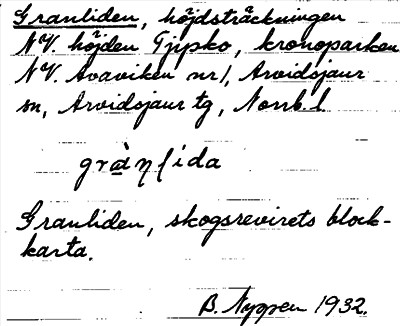 Granliden, höjdsträckningen
NV. höjden Tjipko, kronoparken
NV. Avaviken nr 1, Arvidsjaur
sn, Arvidsjaur tg, Norrb. l.
grànlida
Granliden, skogsrevirets block-
karta.
B. Nyppen 1932.